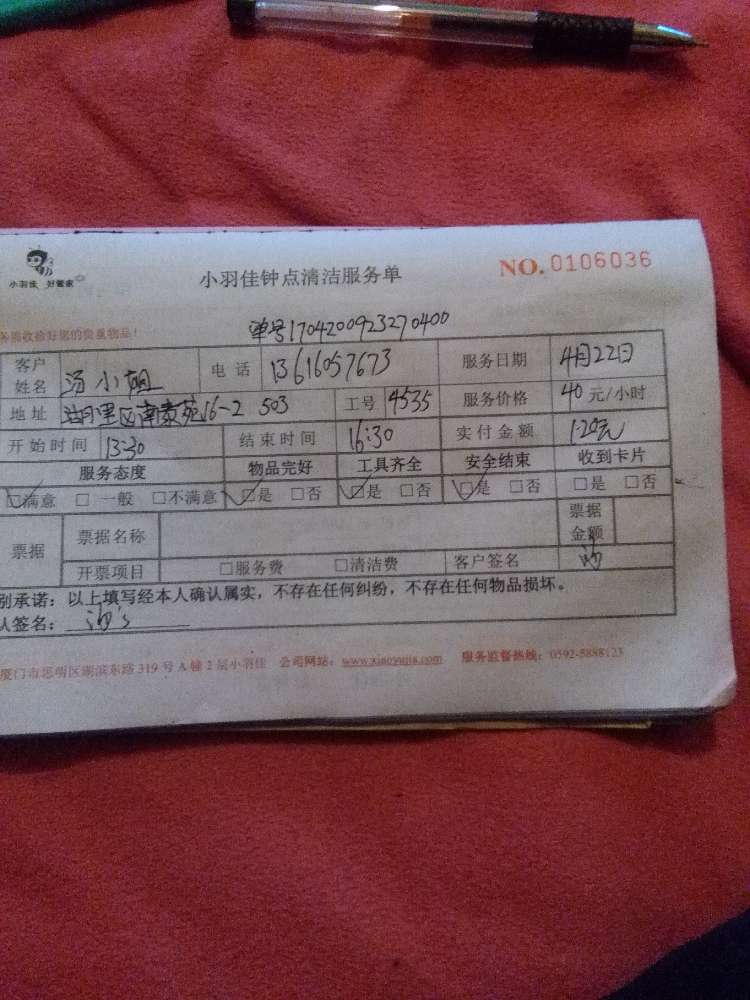 小羽佳 好管家
小羽佳钟点清洁服务单
NO. 0106036
务前收拾好您的贵重物品!
单号1704200923270400
客户姓名 汤小姐 电话 13616057673 服务日期 4月22日
地址 湖里区南景苑16-2 503 工号 4535 服务价格 40 元/小时
开始时间 13:30 结束时间 16:30 实付金额 120元
服务态度 物品完好 工具齐全 安全结束 收到卡片
☑满意 □ 一般 □不满意 ☑是 □否 ☑是 □否 ☑是 □否 □是 □否
票据 票据名称 票据金额
开票项目 □服务费 □清洁费 客户签名 汤
别承诺:以上填写经本人确认属实,不存在任何纠纷,不存在任何物品损坏。
认签名:
厦门市思明区湖滨东路319号A幢2层小羽佳 公司网站:www.xiaoyujia.com 服务监督热线:0592-5888123